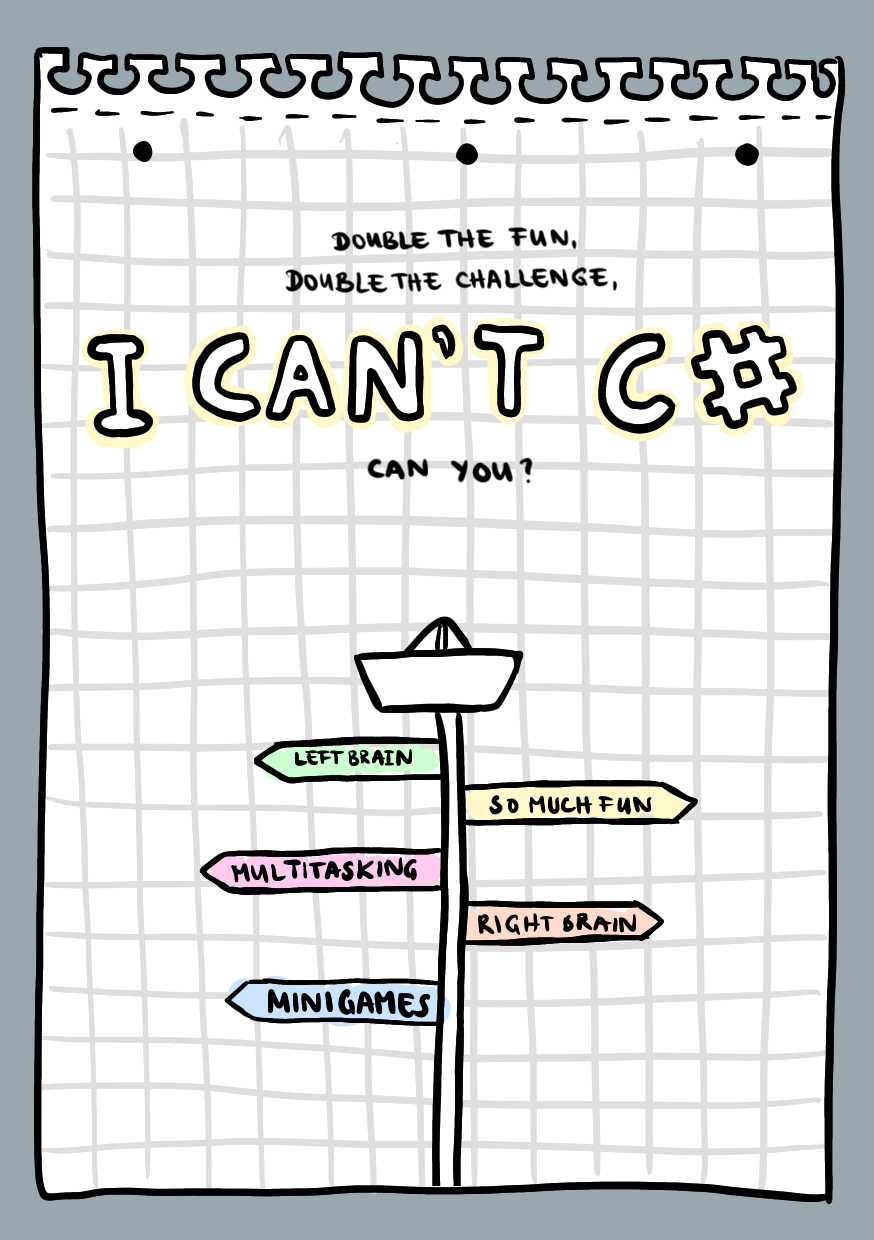 DOUBLE THE FUN,
DOUBLE THE CHALLENGE,
I CAN'T C#
CAN YOU?
LEFT BRAIN
SO MUCH FUN
MULTITASKING
RIGHT BRAIN
MINIGAMES